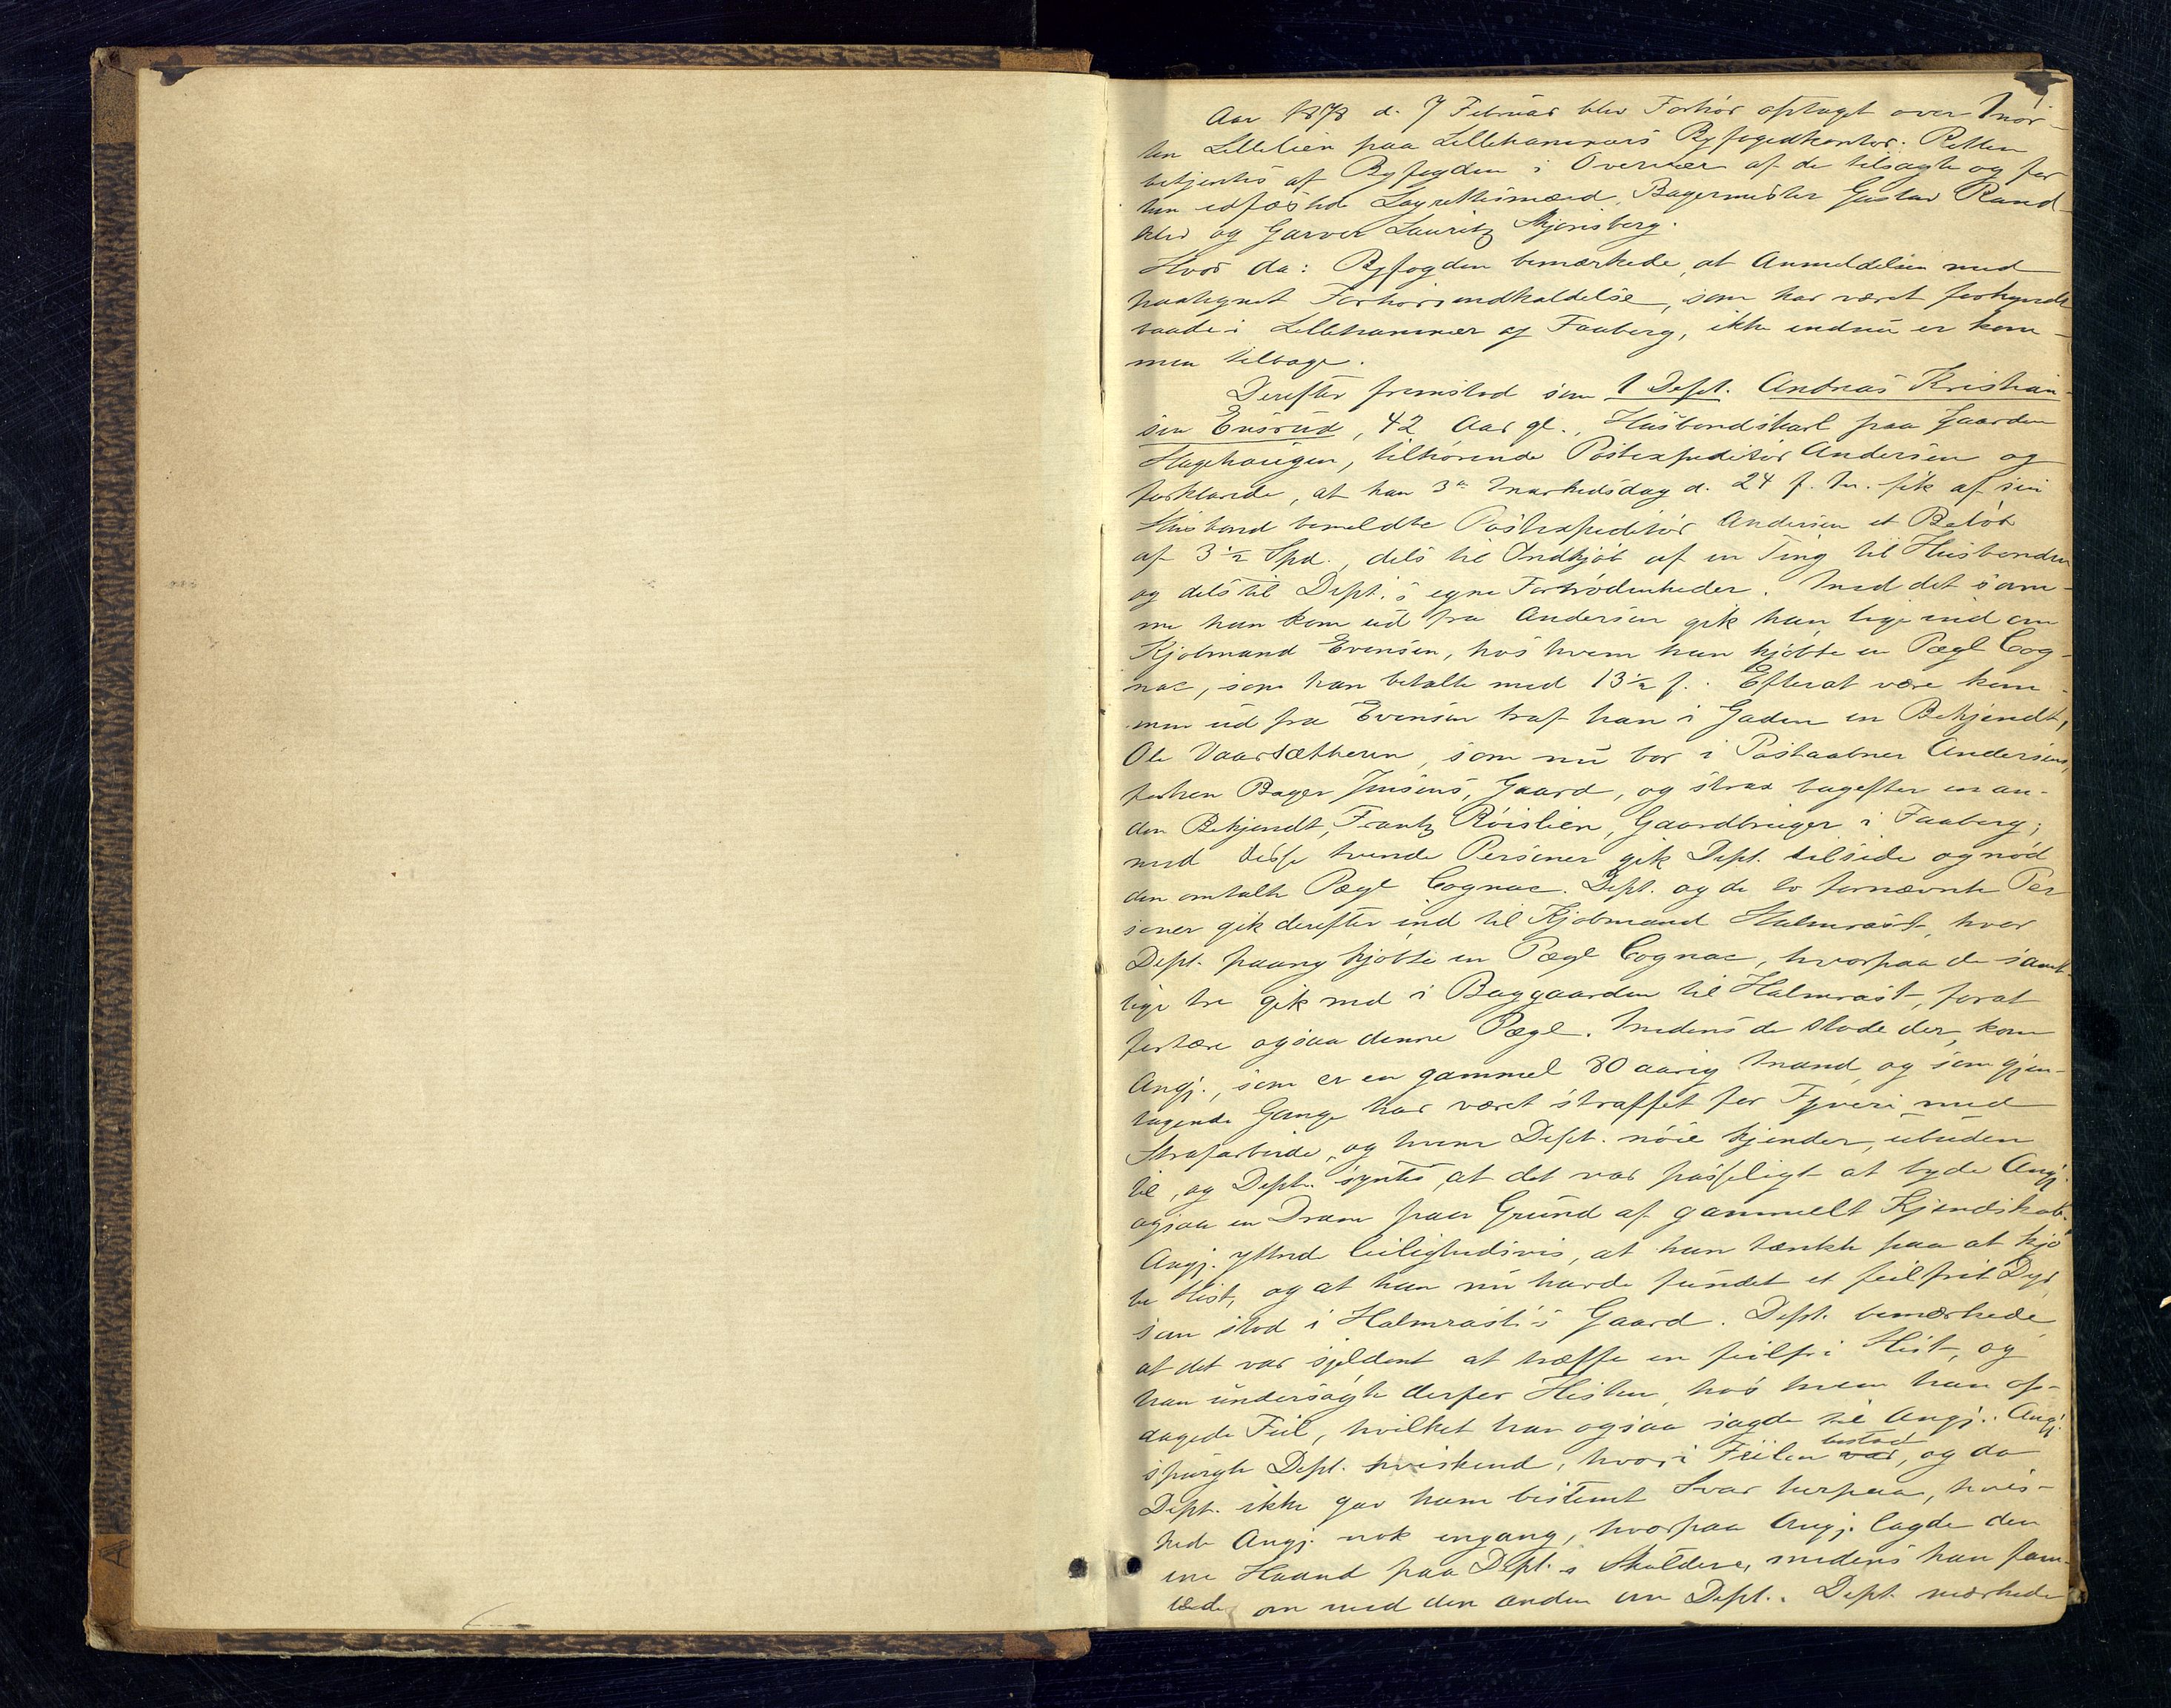 Aar 1878 d. 7 Februar blev Forhör optaget over Mor-
ten Lillelien paa Lillehammers Byfogedkontor. Retten
betjentes af Byfogden i Overvær af de tilsagte og før
hen edfæstede Lagrettesmænd, Bagermester Gustav Rand-
klev og Garver Lauritz Skjønsberg.
Hvor da: Byfogden bemærkede, at Anmeldelsen med
paategnet Forhörsindkaldelse, som har været forkyndt
baade i Lillehammer og Faaberg, ikke endnu er kom-
men tilbage.
Derefter fremstod som 1 Dept. Andreas Kristian-
sen Ensrud, 42 Aar gl., Husbondskarl paa Gaarden
Hagehaugen, tilhörende Postexpeditör Andersen og
forklarede, at han 3die Markedsdag d. 24 f. M. fik af sin
Husbond bemeldte Postexpeditör Andersen et Belöb
af 3 1/2 Spd., dels til Indkjöb af en Ting til Husbonden
og dels til Dept.'s egne Fornödenheder. Med det sam-
me han kom ud fra Andersen gik han lige ind om
Kjöbmand Evensen, hos hvem han kjöbte en Pægl Cog-
nac, som han betalte med 13 1/2 f. Efterat være kom-
men ud fra Evensen traf han i Gaden en Bekjendt,
Ole Vaarsætheren, som nu bor i Postaabner Andersens,
forhen Bager Jensens, Gaard, og strax bagefter en an-
den Bekjendt, Frantz Röislien, Gaardbruger i Faaberg;
med disse tvende Personer gik Dept. tilside og nöd
den omtalte Pægl Cognac. Dept. og de to fornævnte Per
soner gik derefter ind til Kjöbmand Halmrast, hvor
Dept. paany kjöbte en Pægl Cognac, hvorpaa de samt-
lige tre gik ned i Baggaarden til Halmrast, forat
fortære ogsaa denne Pægl. Medens de stode der, kom
Angj., som er en gammel 80 aarig Mand, og som gjen-
tagende Gange har været straffet for Tyveri med
Strafarbeide, og hvem Dept. nöie kjender, ubuden
til, og Dept. syntes, at det var passeligt at byde Angj.
ogsaa en Dram paa Grund af gammelt Kjendskab.
Angj. yttrede leilighedsvis, at han tænkte paa at kjö
be Hest, og at han nu havde fundet et feilfrit Dyr,
som stod i Halmrast's Gaard. Dept. bemærkede
at det var sjeldent at træffe en feilfri Hest, og
han undersögte derfor Hesten, hos hvem han op-
dagede Feil, hvilket han ogsaa sagde til Angj. Angj.
spurgte Dept. hviskende, hvori Feilen var bestod, og da
Dept. ikke gav ham bestemt Svar herpaa, hvis-
kede Angj. nok engang, hvorpaa Angj. lagde den
ene Haand paa Dept.s Skuldere, medens han fam-
lede om med den anden om Dept. Dept. mærkede